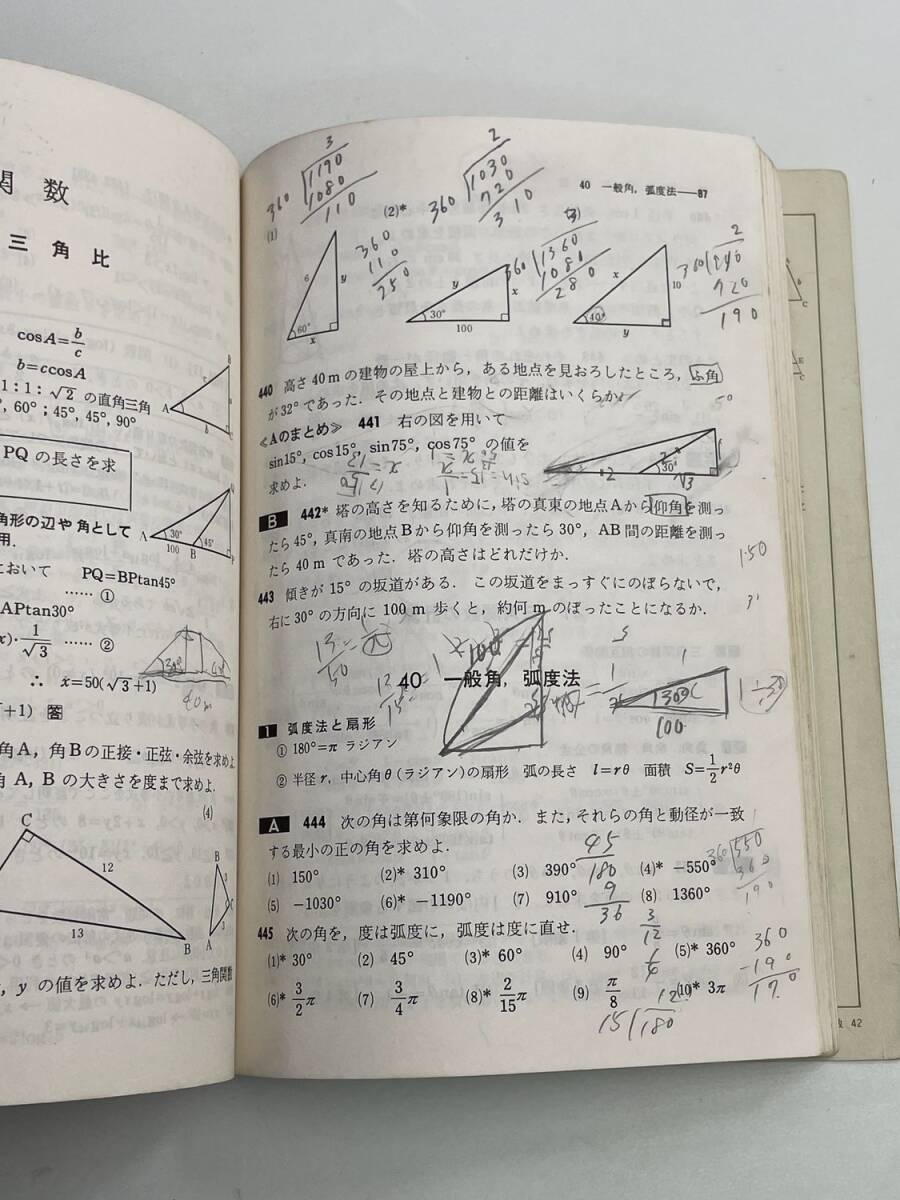 関数
三角比
cosA=b/c
b=c cosA
1:1:√2 の直角三角
60°;45°,45°,90°
PQ の長さを求
角形の辺や角として
用.
A 30° 45° B P
100
において PQ=BPtan45°
…… ①
APtan30°
x)・1/√3 …… ②
∴ x=50(√3+1)
+1) 答
40m
角A, 角Bの正接・正弦・余弦を求めよ
角A, Bの大きさを度まで求めよ.
(4)
C
12
13
B
B
3
C
A
, y の値を求めよ. ただし, 三角関数
40 一般角, 弧度法——87
3
360 1190
1080
110
2
360 1030
720
310
(1)
(2)*
(3)
6 y
60°
x
360
110
250
y x
30°
100
360 1360
1080
280
x 10
40°
y
2
360
720
190
440 高さ40mの建物の屋上から, ある地点を見おろしたところ, ふ角
が32°であった. その地点と建物との距離はいくらか.
≪Aのまとめ≫ 441 右の図を用いて
sin15°, cos15°, sin75°, cos75° の値を
求めよ.
2 2 1
30°
√3
B 442* 塔の高さを知るために, 塔の真東の地点Aから仰角を測っ
たら45°, 真南の地点Bから仰角を測ったら30°, AB間の距離を測っ
たら40mであった. 塔の高さはどれだけか.
1.50
443 傾きが15°の坂道がある. この坂道をまっすぐにのぼらないで,
右に30°の方向に100m歩くと, 約何mのぼったことになるか.
100
40 一般角, 弧度法
1 弧度法と扇形
① 180°=π ラジアン
② 半径r, 中心角θ(ラジアン)の扇形 弧の長さ l=rθ 面積 S=1/2 r²θ
A 444 次の角は第何象限の角か. また, それらの角と動径が一致
する最小の正の角を求めよ.
(1) 150° (2)* 310° (3) 390° (4)* −550°
(5) −1030° (6)* −1190° (7) 910° (8) 1360°
45
180
9
36
3
12
360 550
360
190
445 次の角を, 度は弧度に, 弧度は度に直せ.
(1)* 30° (2) 45° (3)* 60° (4) 90° (5)* 360°
(6)* 3/2 π (7) 3/4 π (8)* 2/15 π (9) π/8 (10)* 3π
12
15 180
360
−190
170
数 42